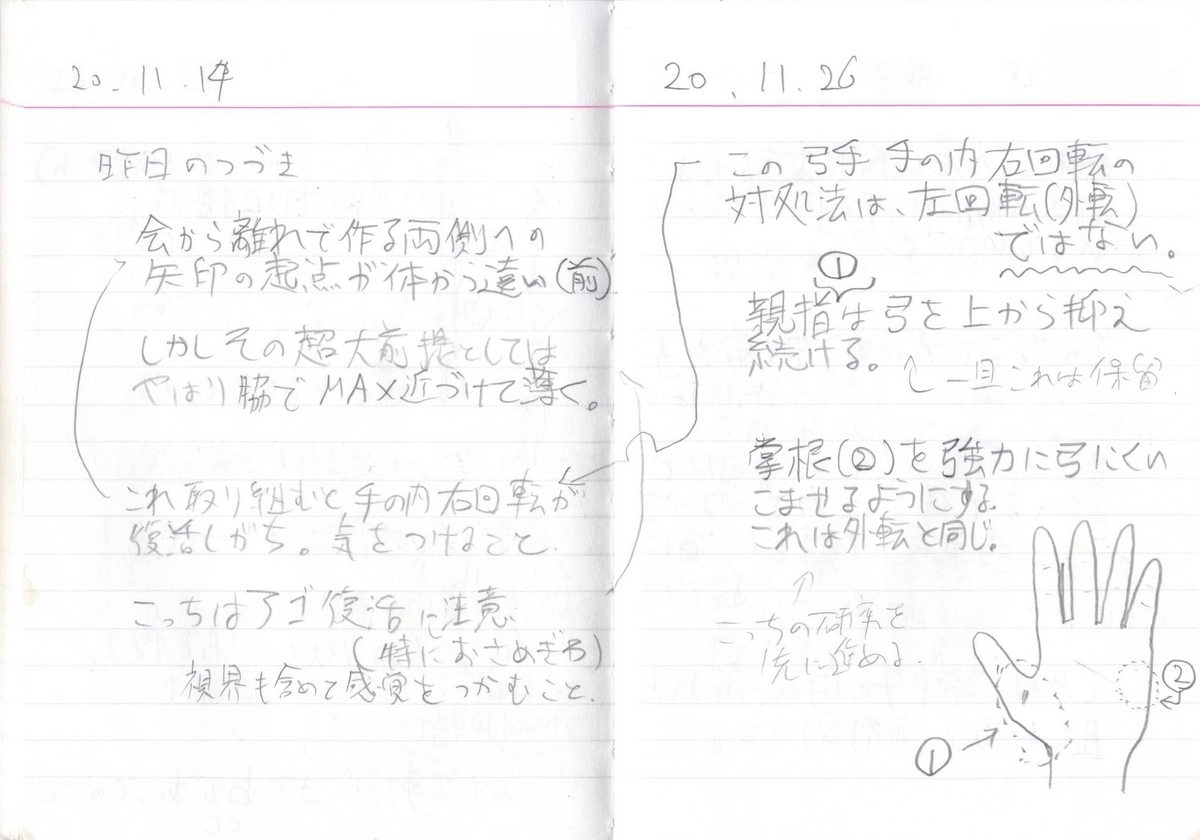 20.11.14
昨日のつづき
会から離れで作る両側への
矢印の起点が体から遠い(前)
しかしその超大前提としては
やはり脇でMAX近づけて薄く。
これ取り組むと手の内右回転が
復活しがち。気をつけること.
こっちはアゴ復活に注意.
(特におさめぎろ)
視界も含めて感覚をつかむこと.
20.11.26
この弓手 手の内右回転の
対処法は、左回転(外転)
ではない。
①
親指は弓を上から抑え
続ける。
↑ 一旦これは保留
掌根(②)を強力に弓にくい
こませるようにする
これは外転と同じ。
↑
こっちの研究を
先に進める.
②
①